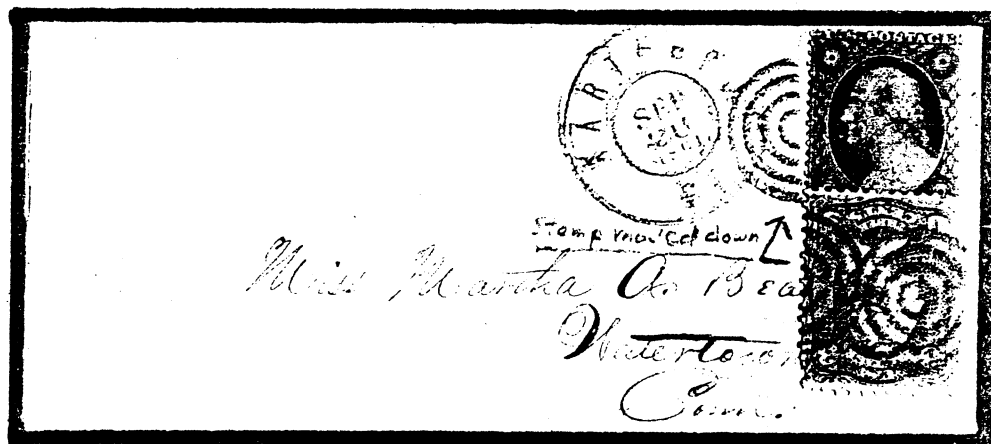 U.S. POSTAGE
HARTFORD
SEP
20
Stamp moved down
Miss Martha A. Bea
Watertown
Conn.